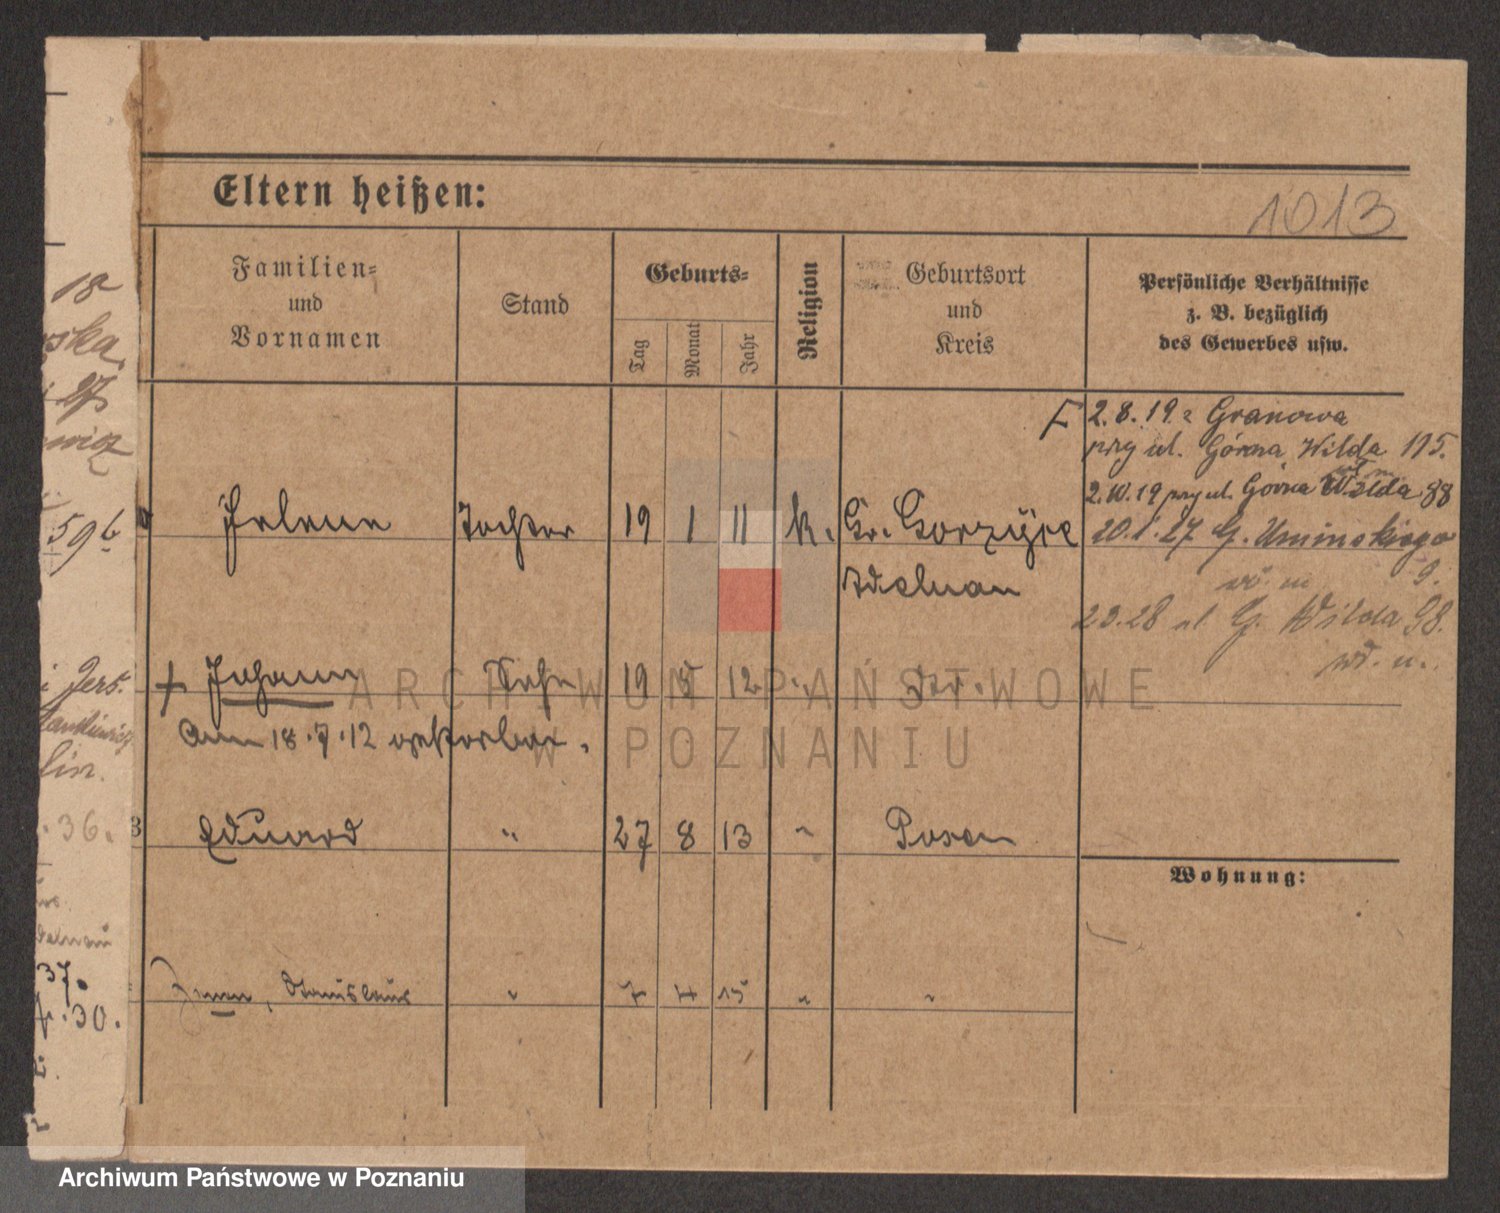 Eltern heißen:
1013
Familien-
und
Vornamen
Stand
Geburts-
Tag
Monat
Jahr
Religion
Geburtsort
und
Kreis
Persönliche Verhältnisse
z. B. bezüglich
des Gewerbes usw.
2.8.19 z Granowa
przy ul. Górna Wilda 115.
2.10.19 przy ul. Górna Wilda 88
20.1.27 G. Uminskiego
9.
G. Wilda 98.
Helene Tochter 19 1 11 k. Gr. Gorzyce
Adelnau
+ Johann Sohn 19 5 12 " dto.
Am 18.7.12 gestorben.
Eduard " 27 8 13 " Posen
Wohnung:
Zenon, Stanislaus " 7 4 15 " "
18
ska
27
wicz
596
i Jers.
lin.
36.
37.
30.
ARCHIWUM PAŃSTWOWE
W POZNANIU
Archiwum Państwowe w Poznaniu